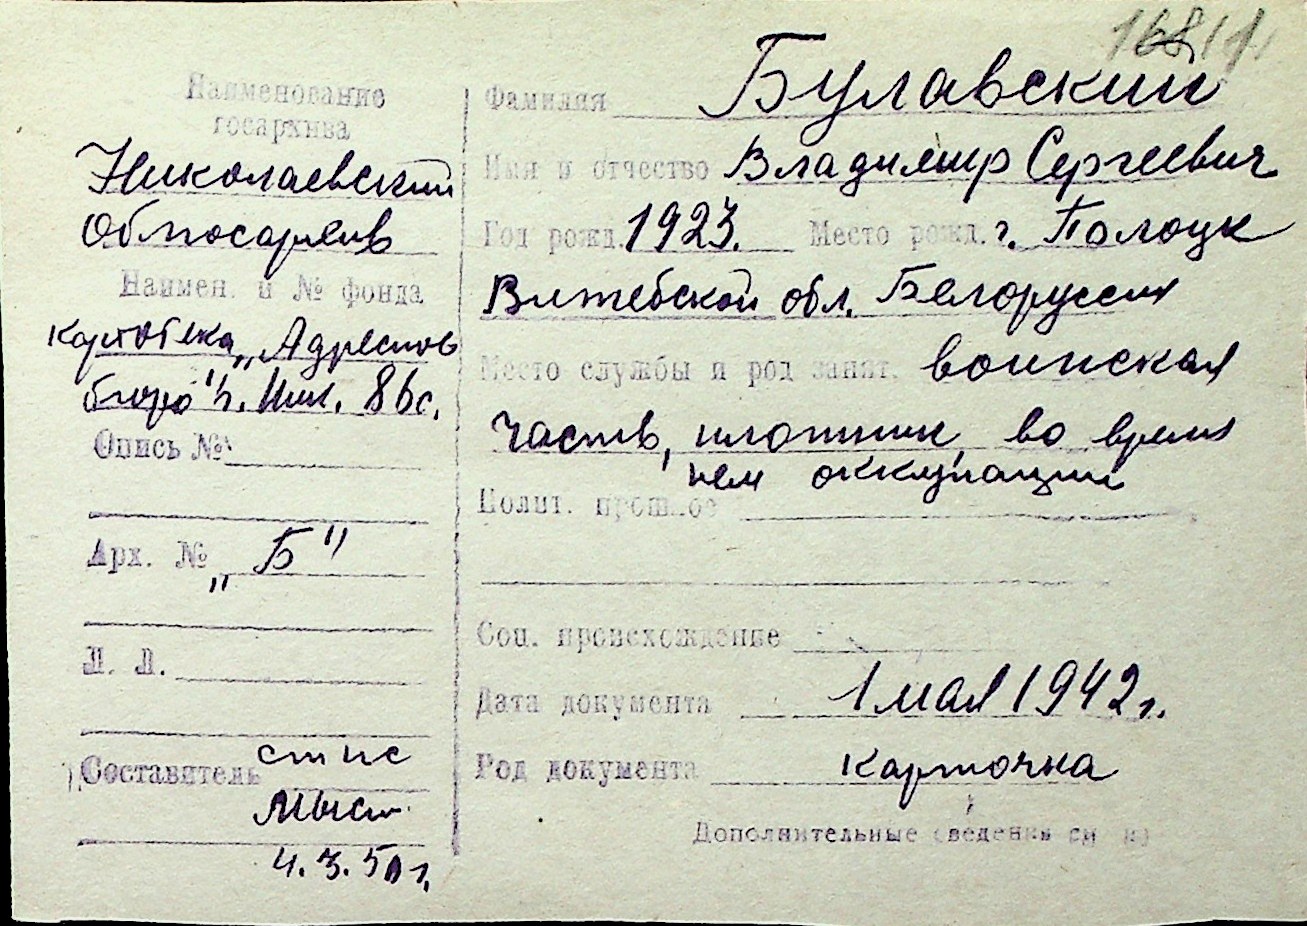 Наименование
госархива
Николаевский
Облгосархив
Наимен. и № фонда
картотека „Адресное
бюро" г. Ник. 86с.
Опись №
Арх. № „Б"
Л. Л.
Составитель
4.3.50 г.
Фамилия Булавский
Имя и отчество Владимир Сергеевич
Год рожд. 1923. Место рожд. г. Полоцк
Витебской обл. Белоруссия
Место службы и род занят. воинская
часть, плотник, во время
нем оккупации
Полит. прошлое
Соц. происхождение
Дата документа 1 мая 1942 г.
Род документа карточка
Дополнительные сведения см на